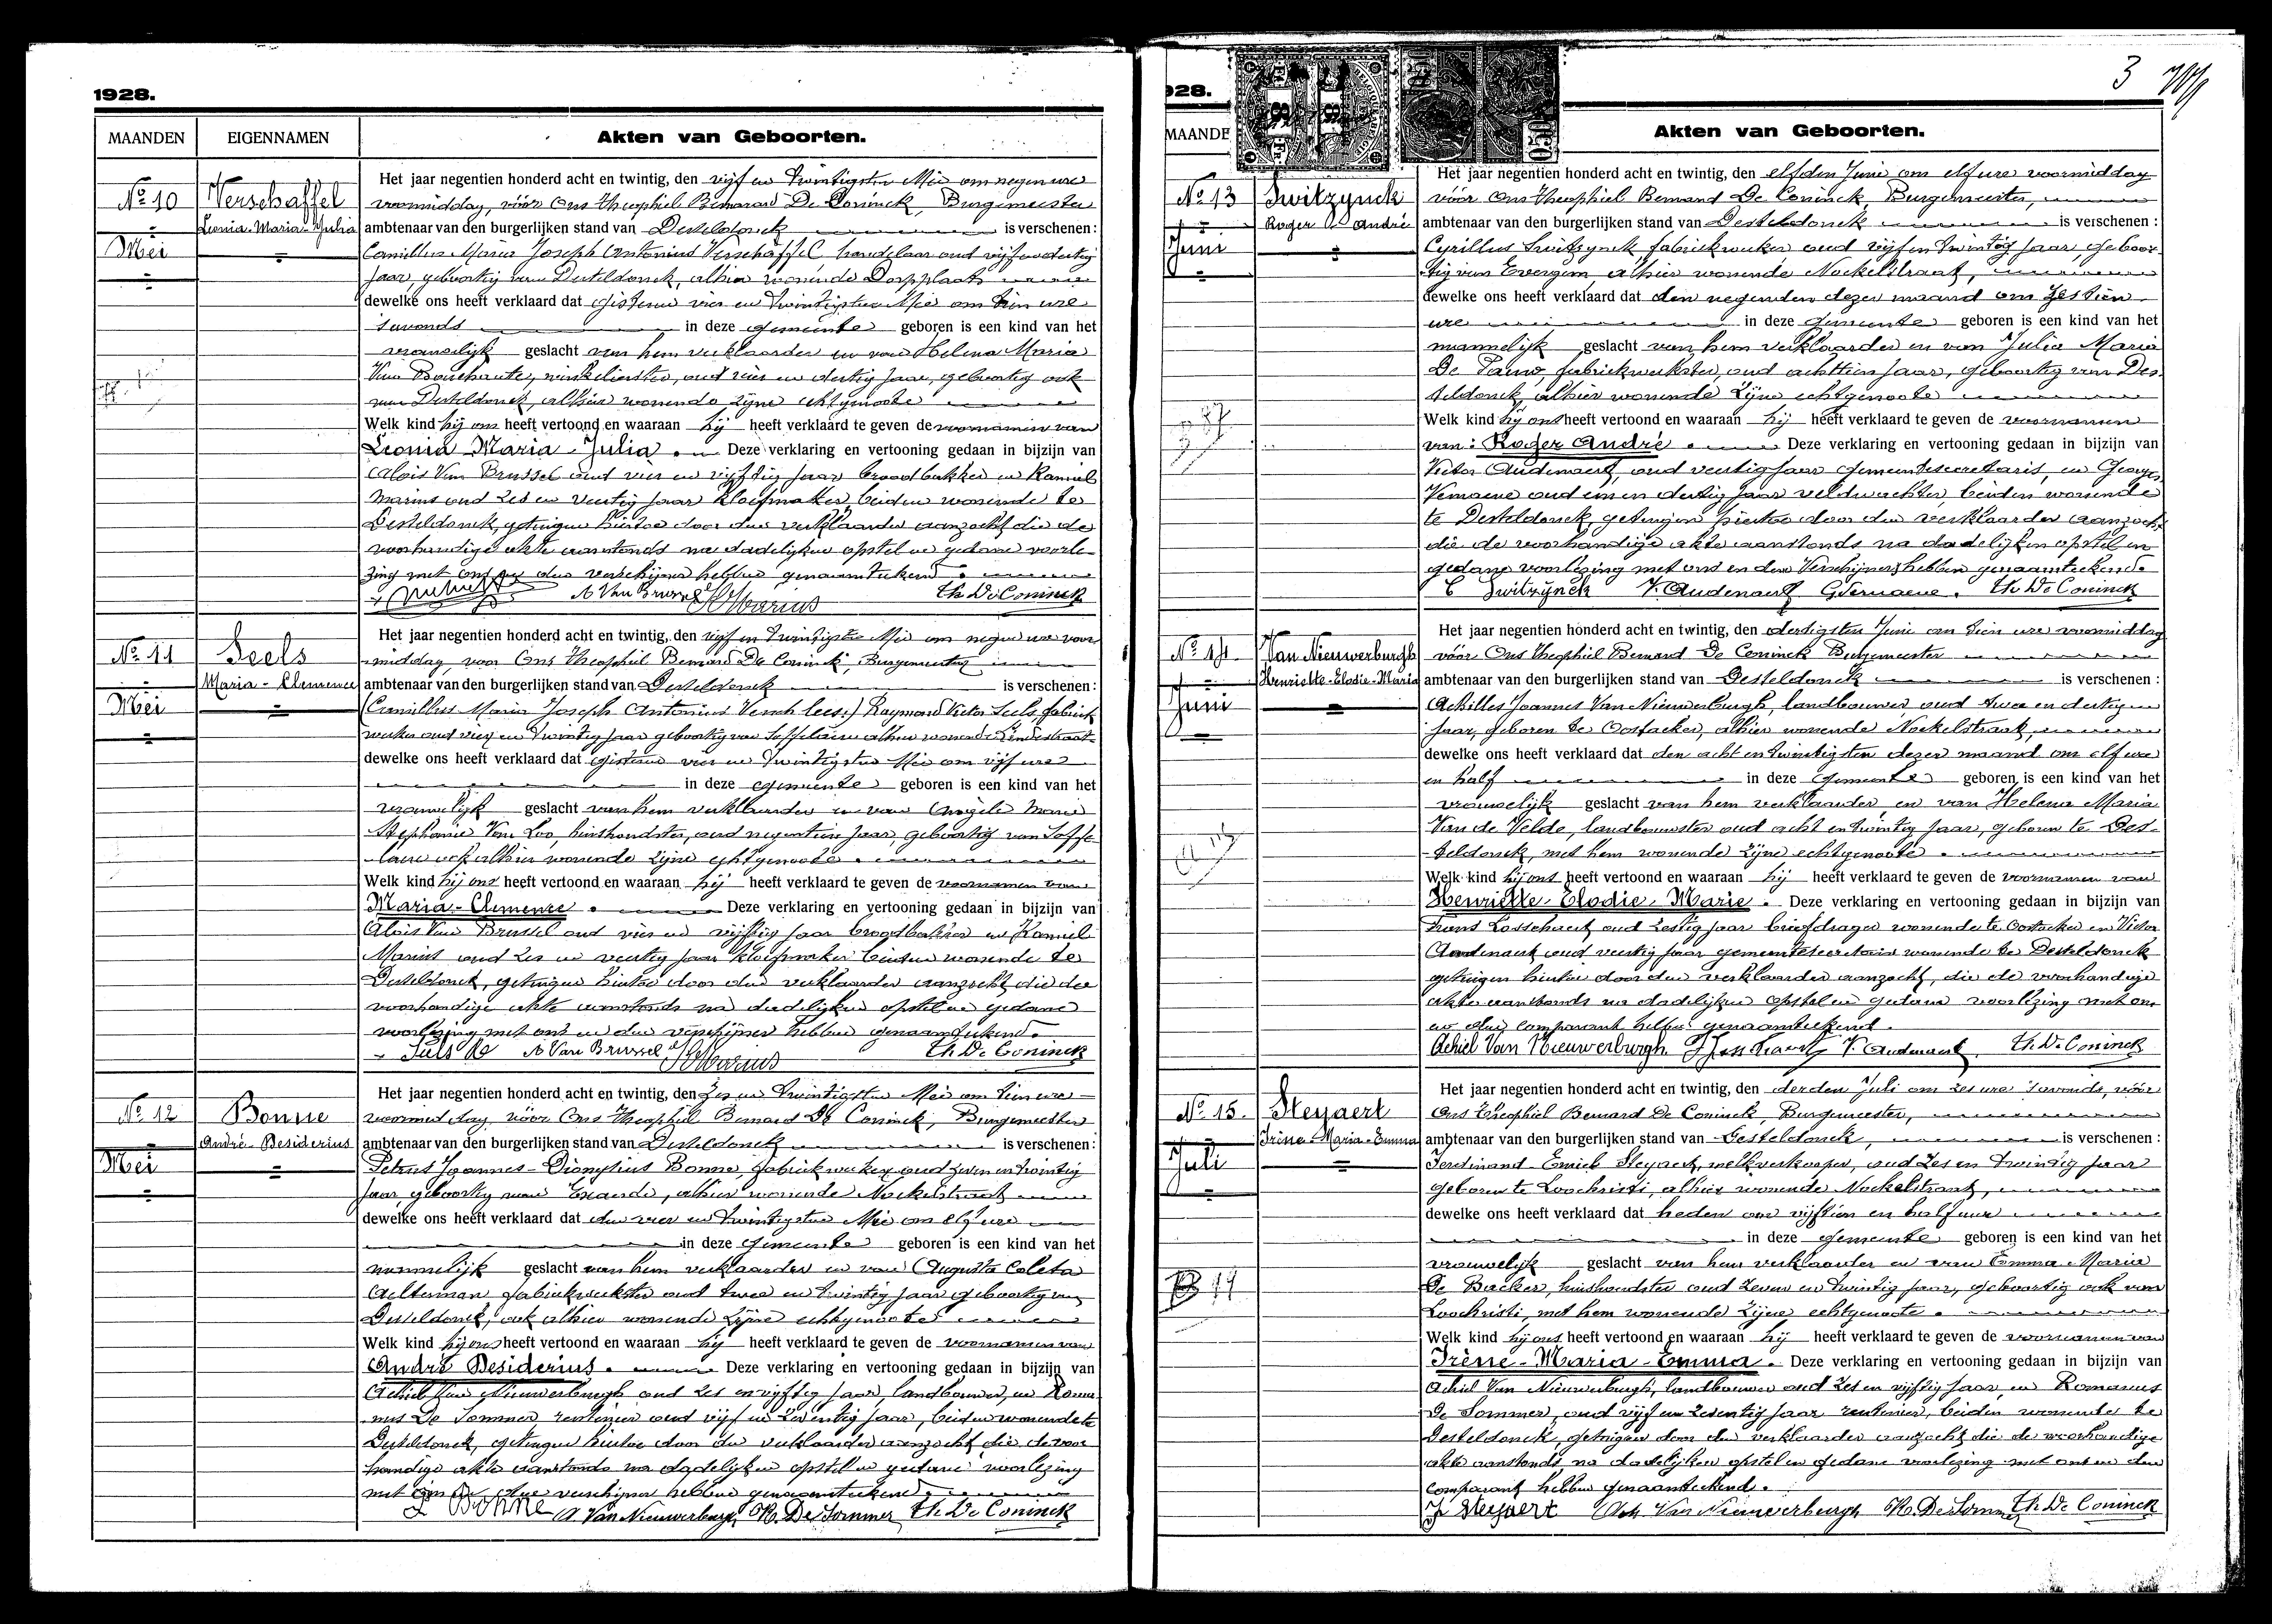 1928.
MAANDEN EIGENNAMEN Akten van Geboorten.
No 10
Verschaffel
Leonia-Maria-Julia
Mei
Het jaar negentien honderd acht en twintig, den vijf en twintigsten Mei om negen ure
voormiddag, vóór Ons Theophiel Bernard De Coninck, Burgemeester
ambtenaar van den burgerlijken stand van Desteldonck is verschenen:
Camillus Maria Joseph Antonius Verschaffel, handelaar oud vijf en dertig
jaar, geboortig van Desteldonck, alhier wonende Dorpplaats
dewelke ons heeft verklaard dat gisteren vier en twintigsten Mei om tien ure
savonds in deze gemeente geboren is een kind van het
vrouwelijk geslacht van hem verklaarder en van Helena Maria
Van Bouchaute, winkelierster, oud vier en dertig jaar, geboortig ook
van Desteldonck, alhier wonende zijne echtgenoote
Welk kind hij ons heeft vertoond en waaraan hij heeft verklaard te geven de voornamen van
Leonia Maria-Julia. Deze verklaring en vertooning gedaan in bijzijn van
Alois Van Brussel oud vier en vijftig jaar broodbakker en Kamiel
Marius oud zes en veertig jaar kloefmaker, beiden wonende te
Desteldonck, getuigen hiertoe door den verklaarder aanzocht die de
voorhandige akte aanstonds na dadelijken opstel en gedane voorle-
zing met ons en den verschijner hebben genaamteekend.
A Van Brussel Marius Th De Coninck
No 11
Seels
Maria-Clemence
Mei
Het jaar negentien honderd acht en twintig, den vijf en twintigsten Mei om negen ure voor
middag, voor Ons Theophiel Bernard De Coninck, Burgemeester
ambtenaar van den burgerlijken stand van Desteldonck is verschenen:
(Camillus Maria Joseph Antonius Versch lees:) Raymond Victor Seels, fabriek
werker oud vier en twintig jaar geboortig van Saffelaere alhier wonende Lindestraat
dewelke ons heeft verklaard dat gisteren vier en twintigsten Mei om vijf ure
in deze gemeente geboren is een kind van het
vrouwelijk geslacht van hem verklaarder en van Angele Marie
Stephanie Van Loo, huishoudster, oud negentien jaar, geboortig van Saffe-
laere ook alhier wonende zijne echtgenoote.
Welk kind hij ons heeft vertoond en waaraan hij heeft verklaard te geven de voornamen van
Maria-Clemence. Deze verklaring en vertooning gedaan in bijzijn van
Alois Van Brussel oud vier en vijftig jaar broodbakker en Kamiel
Marius oud zes en veertig jaar kloefmaker beiden wonende te
Desteldonck, getuigen hiertoe door den verklaarder aanzocht, die de
voorhandige akte aanstonds na dadelijken opstel en gedane
voorlezing met ons en den verschijner hebben genaamteekend.
Seels A Van Brussel Marius Th De Coninck
No 12
Bonne
André-Desiderius
Mei
Het jaar negentien honderd acht en twintig, den zes en twintigsten Mei om tien ure
voormiddag, vóór Ons Theophiel Bernard De Coninck, Burgemeester
ambtenaar van den burgerlijken stand van Desteldonck is verschenen:
Petrus Joannes-Dionysius Bonne, fabriekwerker, oud zeven en twintig
jaar, geboortig van Exaarde, alhier wonende Nockelstraat
dewelke ons heeft verklaard dat den vier en twintigsten Mei om elf ure
in deze gemeente geboren is een kind van het
mannelijk geslacht van hem verklaarder en van Augusta Coleta
Aelterman fabriekwerkster oud twee en twintig jaar geboortig van
Desteldonck, ook alhier wonende zijne echtgenoote
Welk kind hij ons heeft vertoond en waaraan hij heeft verklaard te geven de voornamen van
André Desiderius. Deze verklaring en vertooning gedaan in bijzijn van
Achiel Van Nieuwerburgh oud zes en vijftig jaar, landbouwer, en Roma-
nus De Sommer, rentenier oud vijf en zeventig jaar, beiden wonende te
Desteldonck, getuigen hiertoe door den verklaarder aanzocht die de voor
handige akte aanstonds na dadelijken opstel en gedane voorlezing
met ons en den verschijner hebben genaamteekend.
Bonne A Van Nieuwerburgh R. De Sommer Th De Coninck
3
928.
MAANDE Akten van Geboorten.
No 13
Switzynck
Roger André
Juni
Het jaar negentien honderd acht en twintig, den elfden Juni om elf ure voormiddag
vóór Ons Theophiel Bernard De Coninck, Burgemeester,
ambtenaar van den burgerlijken stand van Desteldonck is verschenen:
Cyrillus Switzynck fabriekwerker oud vijf en twintig jaar, geboor-
tig van Evergem, alhier wonende Nockelstraat,
dewelke ons heeft verklaard dat den negenden dezer maand om zestien
ure in deze gemeente geboren is een kind van het
mannelijk geslacht van hem verklaarder en van Julia Maria
De Pauw, fabriekwerkster, oud achttien jaar, geboortig van Des-
teldonck, alhier wonende zijne echtgenoote
Welk kind hij ons heeft vertoond en waaraan hij heeft verklaard te geven de voornamen
van: Roger André. Deze verklaring en vertooning gedaan in bijzijn van
Victor Audenaert, oud veertig jaar gemeentesecretaris, en Georges
Vernaeve oud een en dertig jaar veldwachter beiden wonende
te Desteldonck, getuigen hiertoe door den verklaarder aanzocht,
die de voorhandige akte aanstonds na dadelijken opstel en
gedane voorlezing met ons en den Verschijner hebben genaamteekend.
C Switzynck V. Audenaert G Vernaeve. Th De Coninck
No 14
Van Nieuwerburgh
Henriette-Elodie-Maria
Juni
Het jaar negentien honderd acht en twintig, den dertigsten Juni om tien ure voormiddag
vóór Ons Theophiel Bernard De Coninck Burgemeester
ambtenaar van den burgerlijken stand van Desteldonck is verschenen:
Achilles Joannes Van Nieuwerburgh, landbouwer oud twee en dertig
jaar, geboren te Oostacker, alhier wonende Nockelstraat,
dewelke ons heeft verklaard dat den acht en twintigsten dezer maand om elf ure
en half in deze gemeente geboren is een kind van het
vrouwelijk geslacht van hem verklaarder en van Helena Maria
Van de Velde, landbouwster oud acht en twintig jaar, geboren te Des-
teldonck, met hem wonende zijne echtgenoote.
Welk kind hij ons heeft vertoond en waaraan hij heeft verklaard te geven de voornamen van
Henriette-Elodie-Marie. Deze verklaring en vertooning gedaan in bijzijn van
Frans Losschaert oud zestig jaar briefdrager wonende te Oostacker en Victor
Audenaert oud veertig jaar gemeentesecretaris wonende te Desteldonck
getuigen hiertoe door den verklaarder aanzocht, die de voorhandige
akte aanstonds na dadelijken opstel en gedane voorlezing met ons
en den comparant hebben genaamteekend.
Achiel Van Nieuwerburgh. V. Audenaert. Th. De Coninck
No 15.
Steyaert
Irène-Maria-Emma
Juli
Het jaar negentien honderd acht en twintig, den derden Juli om zes ure savonds, vóór
Ons Theophiel Bernard De Coninck, Burgemeester,
ambtenaar van den burgerlijken stand van Desteldonck, is verschenen:
Ferdinand-Emiel Steyaert, melkverkooper, oud zes en twintig jaar
geboren te Loochristi, alhier wonende Nockelstraat,
dewelke ons heeft verklaard dat heden om vijftien en half ure
in deze gemeente geboren is een kind van het
vrouwelijk geslacht van hem verklaarder en van Emma-Maria
De Backer, huishoudster oud zeven en twintig jaar, geboortig ook van
Loochristi, met hem wonende zijne echtgenoote.
Welk kind hij ons heeft vertoond en waaraan hij heeft verklaard te geven de voornamen van
Irène-Maria-Emma. Deze verklaring en vertooning gedaan in bijzijn van
Achiel Van Nieuwerburgh, landbouwer oud zes en vijftig jaar en Romanus
De Sommer, oud vijf en zeventig jaar rentenier, beiden wonende te
Desteldonck, getuigen door den verklaarder aanzocht die de voorhandige
akte aanstonds na dadelijken opstel en gedane voorlezing met ons en den
comparant hebben genaamteekend.
Steyaert Ach Van Nieuwerburgh R. De Sommer Th De Coninck